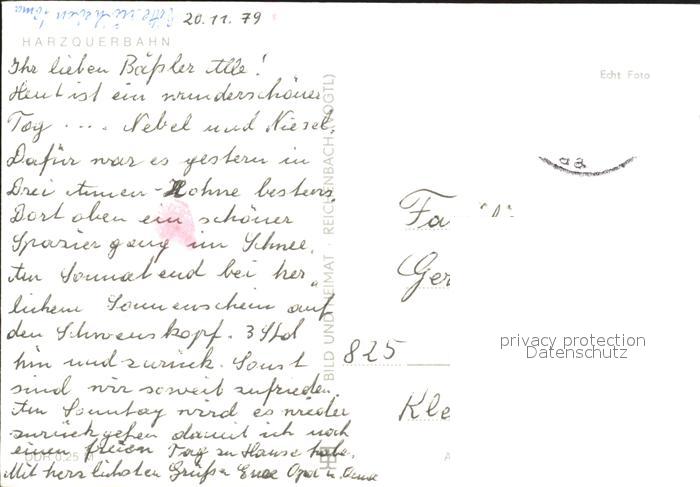 20.11.79
HARZQUERBAHN
Ihr lieben Bäßler Alle!
Heut ist ein wunderschöner
Tag .... Nebel und Niesel.
Dafür war es gestern in
Drei Annen-Hohne bestens.
Dort oben ein schöner
Spaziergang im Schnee.
Am Sonnabend bei herr„
lichem Sonnenschein auf
den 3 Std
hin und zurück. Sonst
sind wir soweit zufrieden.
Am Sonntag wird es wieder
zurückgehen damit ich noch
einen freien Tag zu Hause habe.
Mit herzlichsten Grüßen Eure Opa u. Oma
DDR 0,25 M
BILD UND HEIMAT · REICHENBACH (VOGTL)
Echt Foto
Fa
Ger
825
Kle
privacy protection
Datenschutz